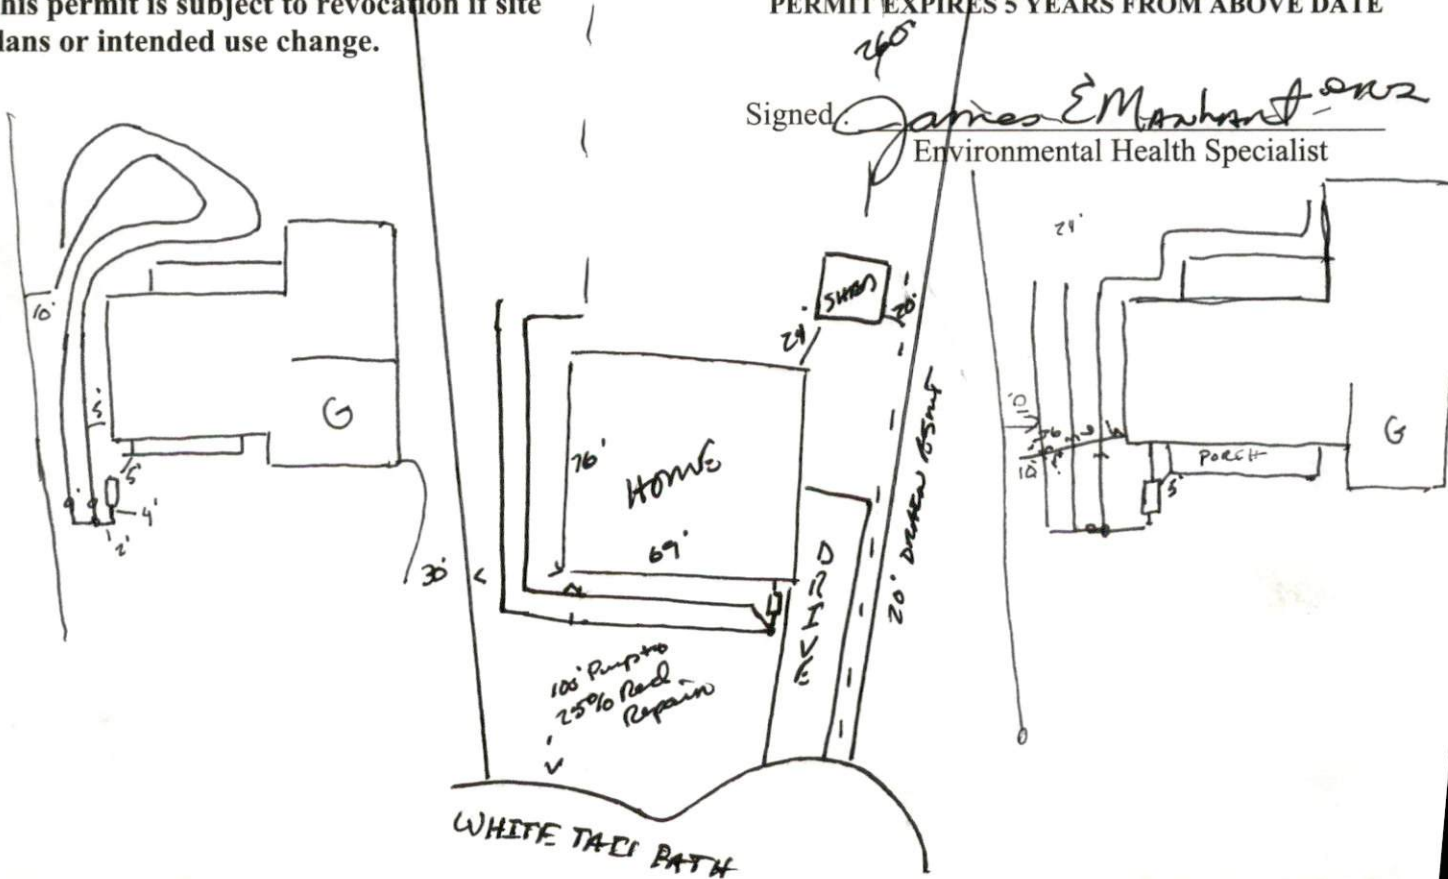 his permit is subject to revocation if site
lans or intended use change.
PERMIT EXPIRES 5 YEARS FROM ABOVE DATE
260'
Signed. James E Manhart
Environmental Health Specialist
10'
5'
G
5'
4'
2'
SHED
20'
24'
76'
HOME
69'
30'
DRIVE
20' DRAIN
100' Pump to
25% Red
Repair
WHITE TAIL PATH
10'
10'
PORCH
5'
G